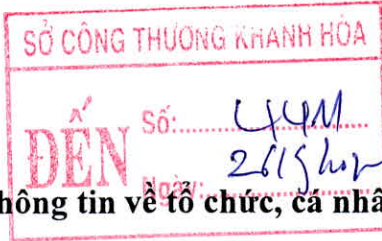 SỞ CÔNG THƯƠNG KHÁNH HÒA
ĐẾN
Số:
Ngày:
hông tin về tổ chức, cá nhâ